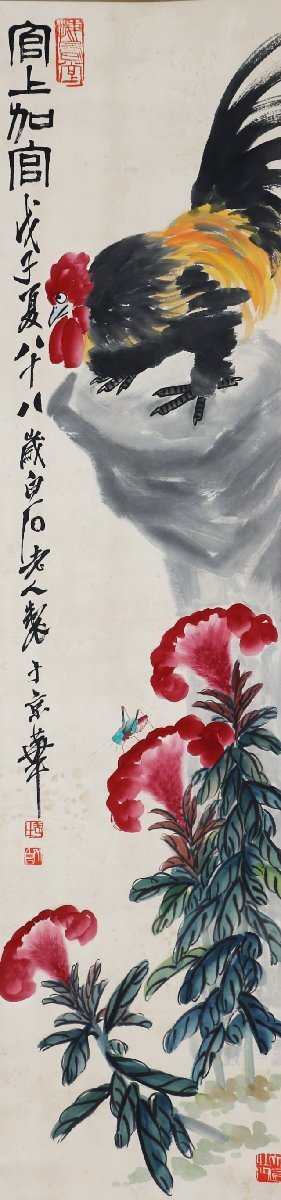 官上加官戊子夏八十八歲白石老人製于京華